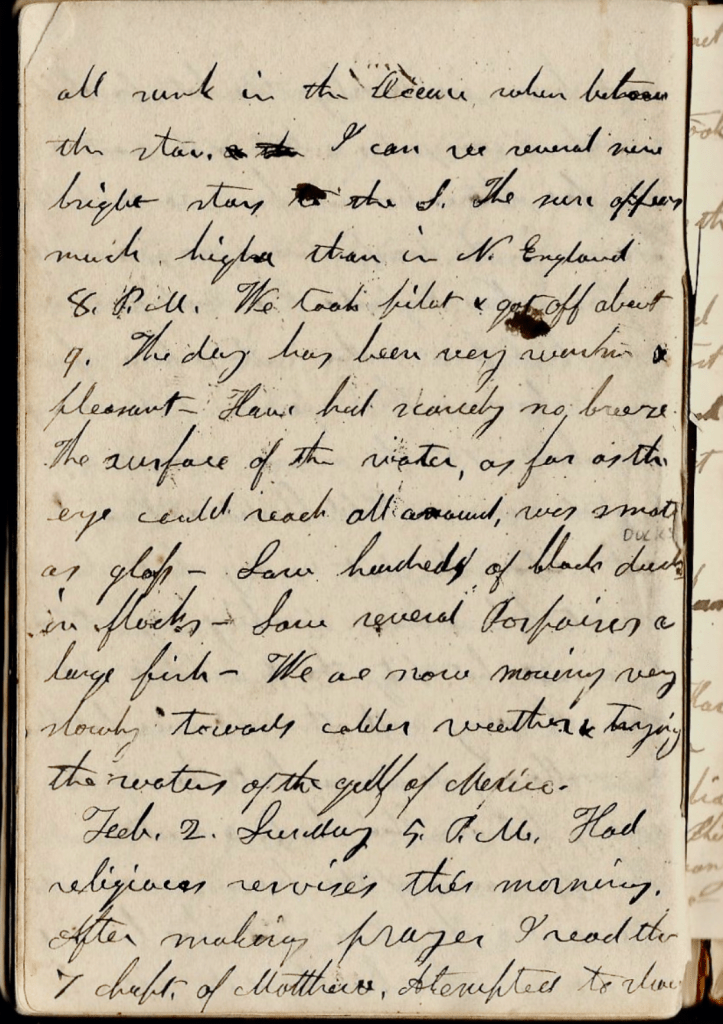 all sunk in the Ocean when between
the stars. I can see several nine
bright stars to the S. The sun appears
much higher than in N. England
8. P.M. We took pilot & got off about
9. The day has been very warm &
pleasant - Have had scarcely no breeze
The surface of the water, as far as the
eye could reach all around, was smooth
DUCKS
as glass - Saw hundreds of black ducks
in flocks - Saw several Porpoises a
large fish - We are now moving very
slowly towards colder weather &
the waters of the gulf of Mexico.
Feb. 2. Sunday 5. P.M. Had
religious services this morning.
After making prayer I read the
7 chapt. of Matthew. Attempted to show